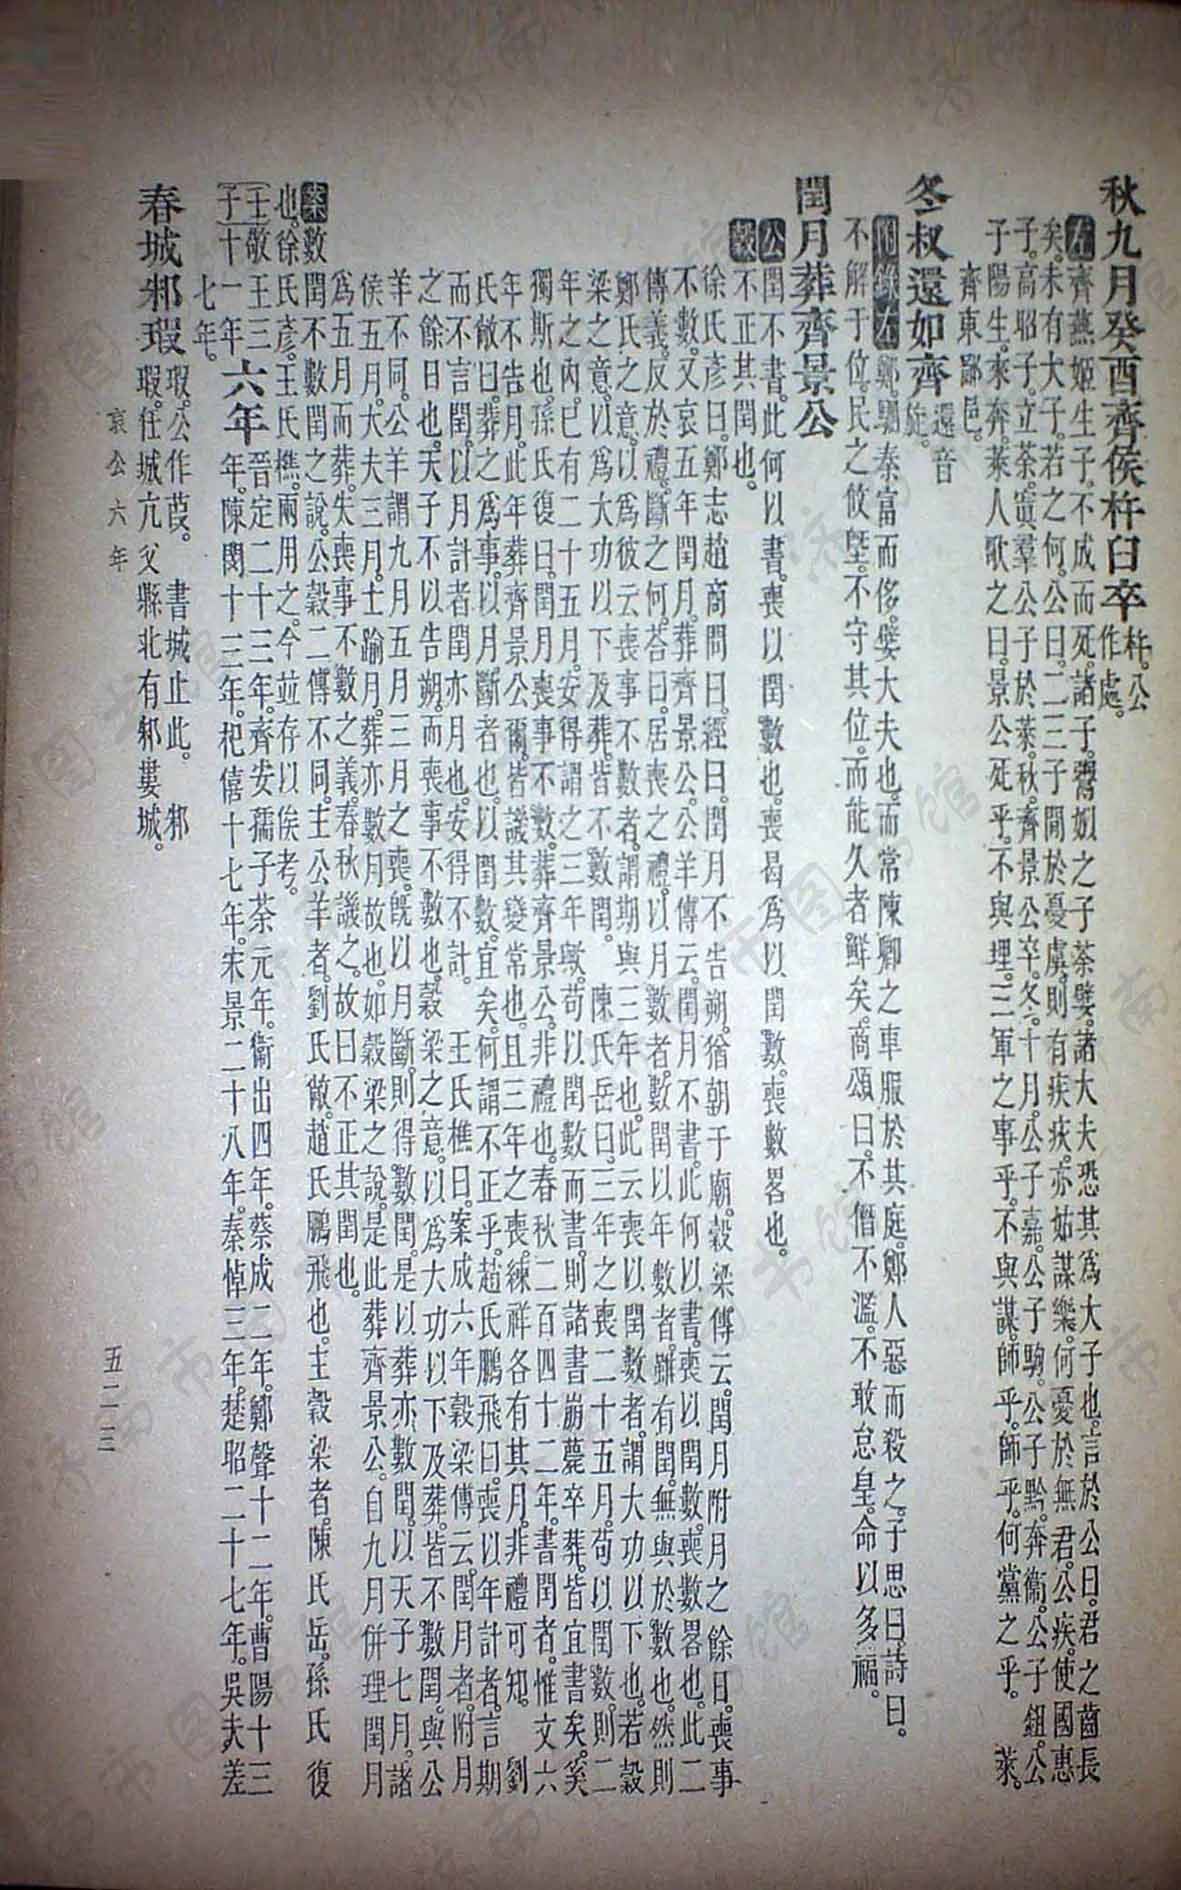 秋九月癸酉齊侯杵臼卒 杵。公
作處。
左 齊燕姬生子。不成而死。諸子鬻姒之子荼嬖。諸大夫恐其爲大子也。言於公曰。君之齒長
矣。未有大子。若之何。公曰。二三子間於憂虞。則有疾疢。亦姑謀樂。何憂於無君。公疾。使國惠
子。高昭子。立荼。寘羣公子於萊。秋。齊景公卒。冬。十月。公子嘉。公子駒。公子黔。奔衞。公子鉏。公
子陽生。來奔。萊人歌之曰。景公死乎。不與埋。三軍之事乎。不與謀。師乎。師乎。何黨之乎。 萊。
齊東鄙邑。
冬叔還如齊 還音
旋。
附錄左 鄭駟秦富而侈。嬖大夫也。而常陳卿之車服於其庭。鄭人惡而殺之。子思曰。詩曰。
不解于位。民之攸墍。不守其位。而能久者。鮮矣。商頌曰。不僭不濫。不敢怠皇。命以多福。
閏月葬齊景公
公 閏不書。此何以書。喪以閏數也。喪曷爲以閏數。喪數畧也。
穀 不正其閏也。
徐氏彥曰。鄭志趙商問曰。經曰。閏月不告朔。猶朝于廟。穀梁傳云。閏月附月之餘日。喪事
不數。又哀五年閏月。葬齊景公。公羊傳云。閏月不書。此何以書。喪以閏數。喪數畧也。此二
傳義。反於禮。斷之何。荅曰。居喪之禮。以月數者。數閏。以年數者。雖有閏。無與於數也。然則
鄭氏之意。以爲彼云喪事不數者。謂期與三年也。此云喪以閏數者。謂大功以下也。若穀
梁之意。以爲大功以下及葬。皆不數閏。 陳氏岳曰。三年之喪。二十五月。苟以閏數。則二
年之內。已有二十五月。安得謂之三年歟。苟以閏數而書。則諸書崩薨卒葬。皆宜書矣。奚
獨斯也。孫氏復曰。閏月喪事不數。葬齊景公。非禮也。春秋二百四十二年。書閏者。惟文六
年不告月。此年葬齊景公爾。皆譏其變常也。且三年之喪。練祥各有其月。非禮可知。 劉
氏敞曰。葬之爲事。以月斷者也。以閏數。宜矣。何謂不正乎。趙氏鵬飛曰。喪以年計者。言期
而不言閏。以月計者。閏亦月也。安得不計。 王氏樵曰。案成六年穀梁傳云。閏月者。附月
之餘日也。天子不以告朔。而喪事不數也。穀梁之意。以爲大功以下及葬。皆不數閏。與公
羊不同。公羊謂九月五月三月之喪。旣以月斷。則得數閏。是以葬亦數閏。以天子七月。諸
侯五月。大夫三月。士踰月。葬亦數月故也。如穀梁之說。是此葬齊景公。自九月併理閏月
爲五月而葬。失喪事不數之義。春秋譏之。故曰不正其閏也。
案 數閏不數閏之說。公穀二傳不同。主公羊者。劉氏敞。趙氏鵬飛也。主穀梁者。陳氏岳。孫氏復
也。徐氏彥。王氏樵。兩用之。今竝存以俟考。
壬子 敬王三十一年 六年 晉定二十三年。齊安孺子荼元年。衞出四年。蔡成二年。鄭聲十二年。曹陽十三
年。陳閔十三年。杞僖十七年。宋景二十八年。秦悼三年。楚昭二十七年。吳夫差
七年。
春城邾瑕 瑕。公作葭。 書城止此。 邾
瑕。任城亢父縣北有邾婁城。
哀公六年
五二三